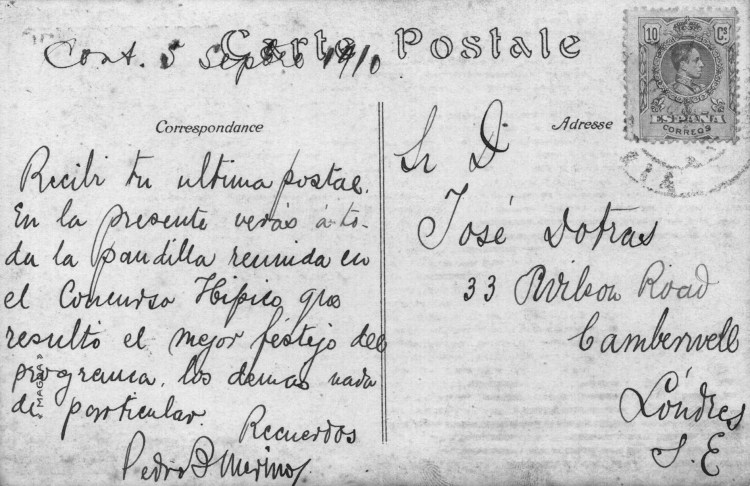 Carte Postale
5 1910
10 Cs
ESPAÑA
CORREOS
Correspondance
Recibi tu ultima postal.
En la presente verás á to-
da la pandilla reunida en
el Concurso Hipico, que
resultó el mejor festejo del
programa. los demas nada
de particular.
Recuerdos
Pedro B Merinos
MAGNA
Adresse
Sr D.
José Dotras
33 Wilson Road
Camberwell
Londres
S. E